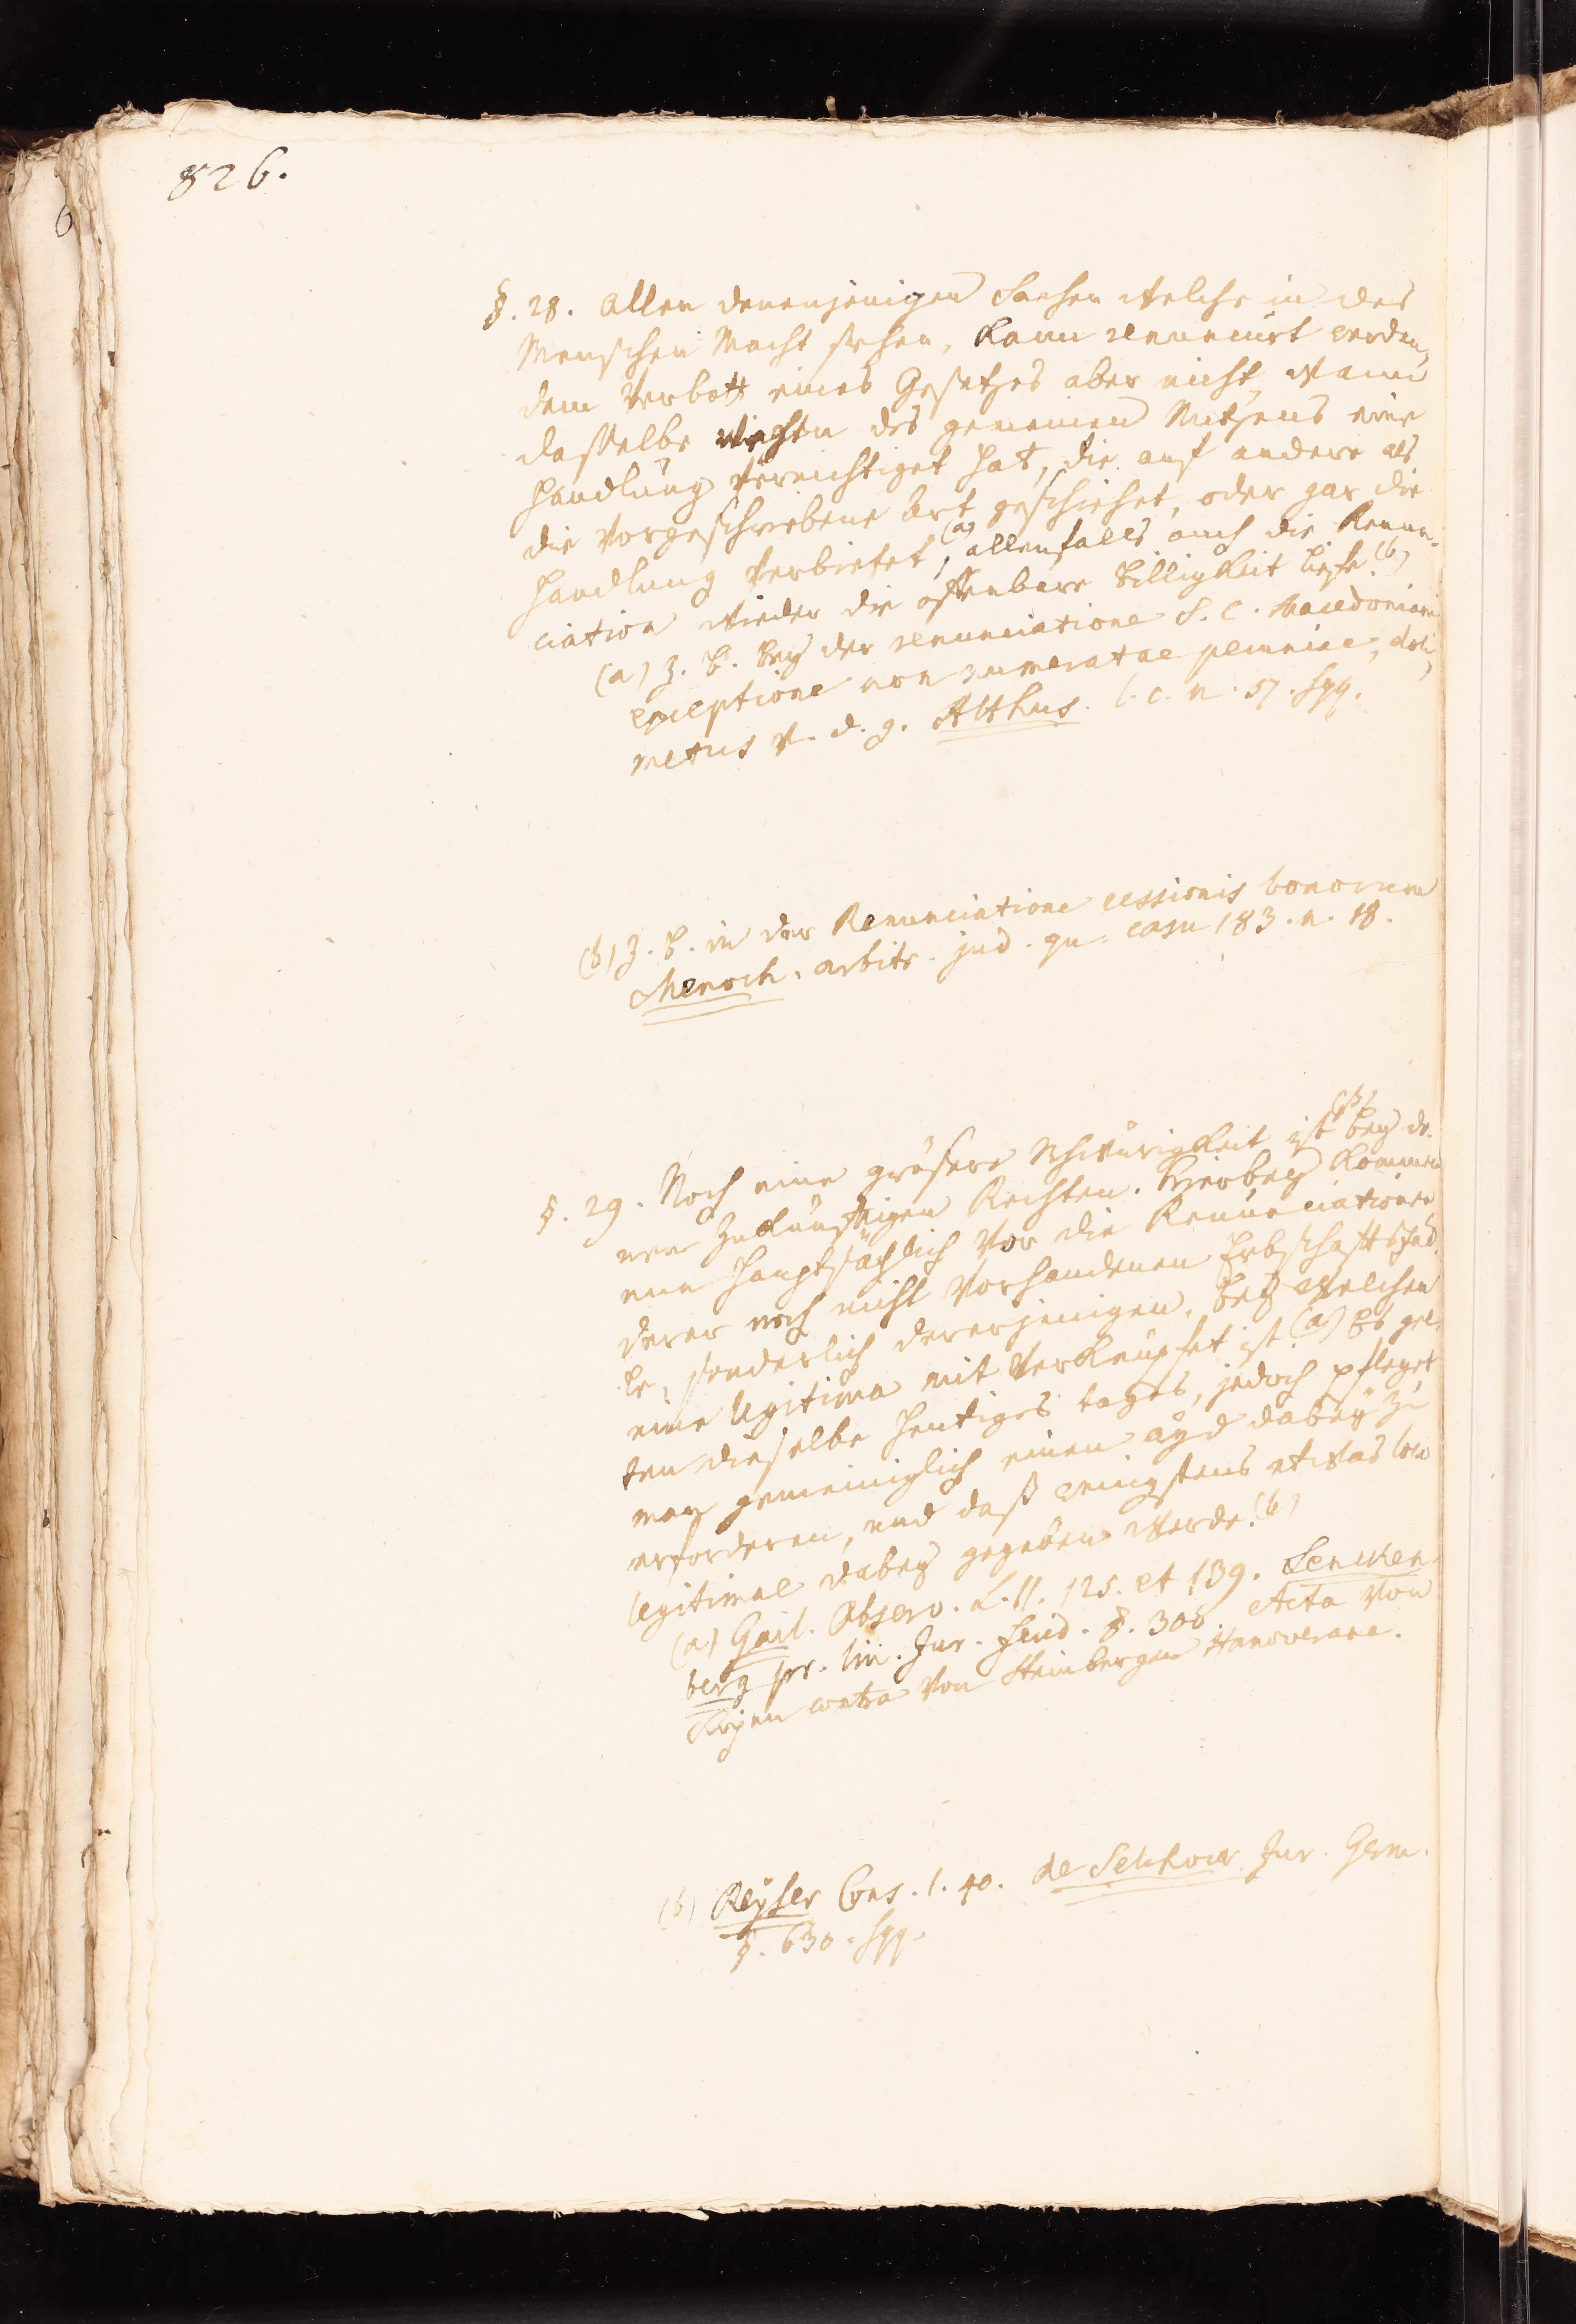 826.
§. 28. Allen denenjenigen Sachen welche in des
Menschen Macht stehen, kann renuncirt werden,
dem Verbott eines Gesetzes aber nicht, wann
dasselbe wegen des gemeinen Nutzens eine
Handlung vernichtiget hat, die auf andere als
die vorgeschriebene Art geschiehet, oder gar die
Handlung verbietet, (a) allenfalls auch die Renun-
ciation wieder die offenbare Billigkeit liefe. (b)
(a) Z. B. bey der renunciatione S. C. Macedoniani
exceptione non numeratae pecuniae, doli,
metus u. d. g. Althus. l. c. n. 57. sqq.
(b) Z. B. in der Renunciatione cessionis bonorum
Menoch. arbitr. jud. qu. casu 183. n. 18.
§. 29. Noch eine grösere Schwürigkeit ist bey de-
nen zukünftigen Rechten. Hierbey kommen
nun hauptsächlich vor die Renunciationen
derer noch nicht vorhandenen Erbschafftsfäl-
le, sonderlich dererjenigen, bey welchen
eine legitima mit verknüpfet ist. (a) Es gel-
ten dieselbe heutiges tages, jedoch pfleget
man gemeiniglich einen ayd dabey zu
erforderen, und daß wenigstens etwas loco
legitimae dabey gegeben werde. (b)
(a) Gail. Observ. L. II. 125. et 139. Sencken-
berg pr. lin. Jur. feud. §. 306. Acta von
contra von Steinbergen Hanoverana.
(b) Reyser Cons. 1. 40. de Selchow Jur. Germ.
§. 630. sqq.